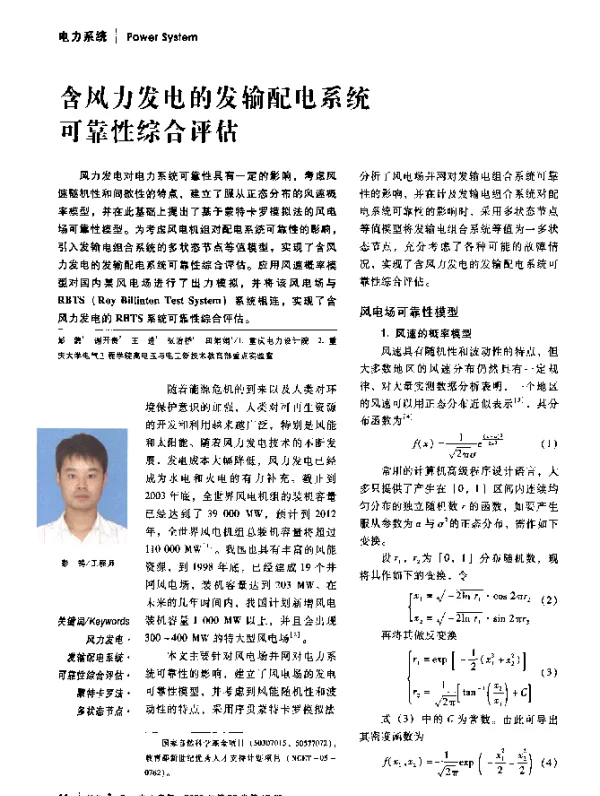 电力系统 | Power System
含风力发电的发输配电系统
可靠性综合评估
风力发电对电力系统可靠性具有一定的影响，考虑风
速随机性和间歇性的特点，建立了服从正态分布的风速概
率模型，并在此基础上提出了基于蒙特卡罗模拟法的风电
场可靠性模型。为考虑风电机组对配电系统可靠性的影响，
引入发输电组合系统的多状态节点等值模型，实现了含风
力发电的发输配电系统可靠性综合评估。应用风速概率模
型对国内某风电场进行了出力模拟，并将该风电场与
RBTS（Roy Billinton Test System）系统相连，实现了含
风力发电的RBTS系统可靠性综合评估。
1. 重庆电力设计院 2. 重
庆大学电气工程学院高电压与电工新技术教育部重点实验室
随着能源危机的到来以及人类对环
境保护意识的加强，人类对可再生资源
的开发和利用越来越广泛，特别是风能
和太阳能。随着风力发电技术的不断发
展，发电成本大幅降低，风力发电已经
成为水电和火电的有力补充。截止到
2003年底，全世界风电机组的装机容量
已经达到了39 000 MW，预计到2012
年，全世界风电机组总装机容量将超过
110 000 MW。我国也具有丰富的风能
资源，到1998年底，已经建成19个并
网风电场，装机容量达到203 MW。在
未来的几年时间内，我国计划新增风电
装机容量1 000 MW以上，并且会出现
300~400 MW的特大型风电场[2]。
本文主要针对风电场并网对电力系
统可靠性的影响，建立了风电场的发电
可靠性模型，并考虑到风能随机性和波
动性的特点，采用序贯蒙特卡罗模拟法
/工程师
关键词/Keywords
风力发电·
发输配电系统·
可靠性综合评估·
蒙特卡罗法·
多状态节点·
国家自然科学基金项目（50307015，50577072），
教育部新世纪优秀人才支持计划项目（NCET-05-
0762）。
分析了风电场并网对发输电组合系统可靠
性的影响，并在计及发输电组合系统对配
电系统可靠性的影响时，采用多状态节点
等值模型将发输电组合系统等值为一多状
态节点，充分考虑了各种可能的故障情
况，实现了含风力发电的发输配电系统可
靠性综合评估。
风电场可靠性模型
1. 风速的概率模型
风速具有随机性和波动性的特点，但
大多数地区的风速分布仍然具有一定规
律，对大量实测数据分析表明，一个地区
的风速可以用正态分布近似表示[3]，其分
布函数为[4]
f(x)=1/√2πσ e (1)
常用的计算机高级程序设计语言，大
多只提供了产生在［0，1］区间内连续均
匀分布的独立随机数r的函数，如要产生
服从参数为α与σ²的正态分布，需作如下
变换。
设r₁，r₂为［0，1］分布随机数，现
将其作如下的变换，令
x₁=√-2ln r₁ · cos 2πr₂ (2)
x₂=√-2ln r₁ · sin 2πr₂
再将其做反变换
r₁=exp[-1/2(x₁²+x₂²)]
(3)
r₂=1/√2π[tan⁻¹(x₂/x₁)+C]
式（3）中的C为常数。由此可导出
其密度函数为
f(x₁,x₂)=-1/√2π exp(-x₁²/2-x₂²/2) (4)